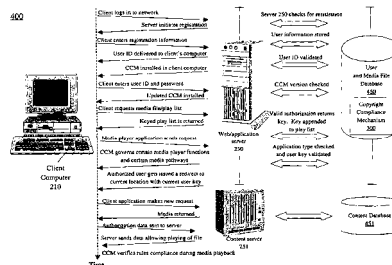 400
Client logs in to network
Server initiates registration
Client enters registration information
User ID delivered to client's computer
CCM installed in client computer
Client enters user ID and password
Updated CCM installed
Client requests media file/play list
Keyed play list is returned
Media player application sends request
CCM governs certain media player functions
and certain media pathways
Authorized user gets issued a redirect to
current location with current user key
Client application makes new request
Media returned
Authorization data sent to server
Server sends data allowing playing of file
CCM verifies rules compliance during media playback
Time
Client
Computer
210
Server 250 checks for registration
User information stored
User ID validated
CCM version checked
Valid authorization returns
key. Key appended
to play list
Application type checked
and user key validated
Web/application
server
250
Content server
251
User
and Media File
Database
450
Copyright
Compliance
Mechanism
300
Content Database
451